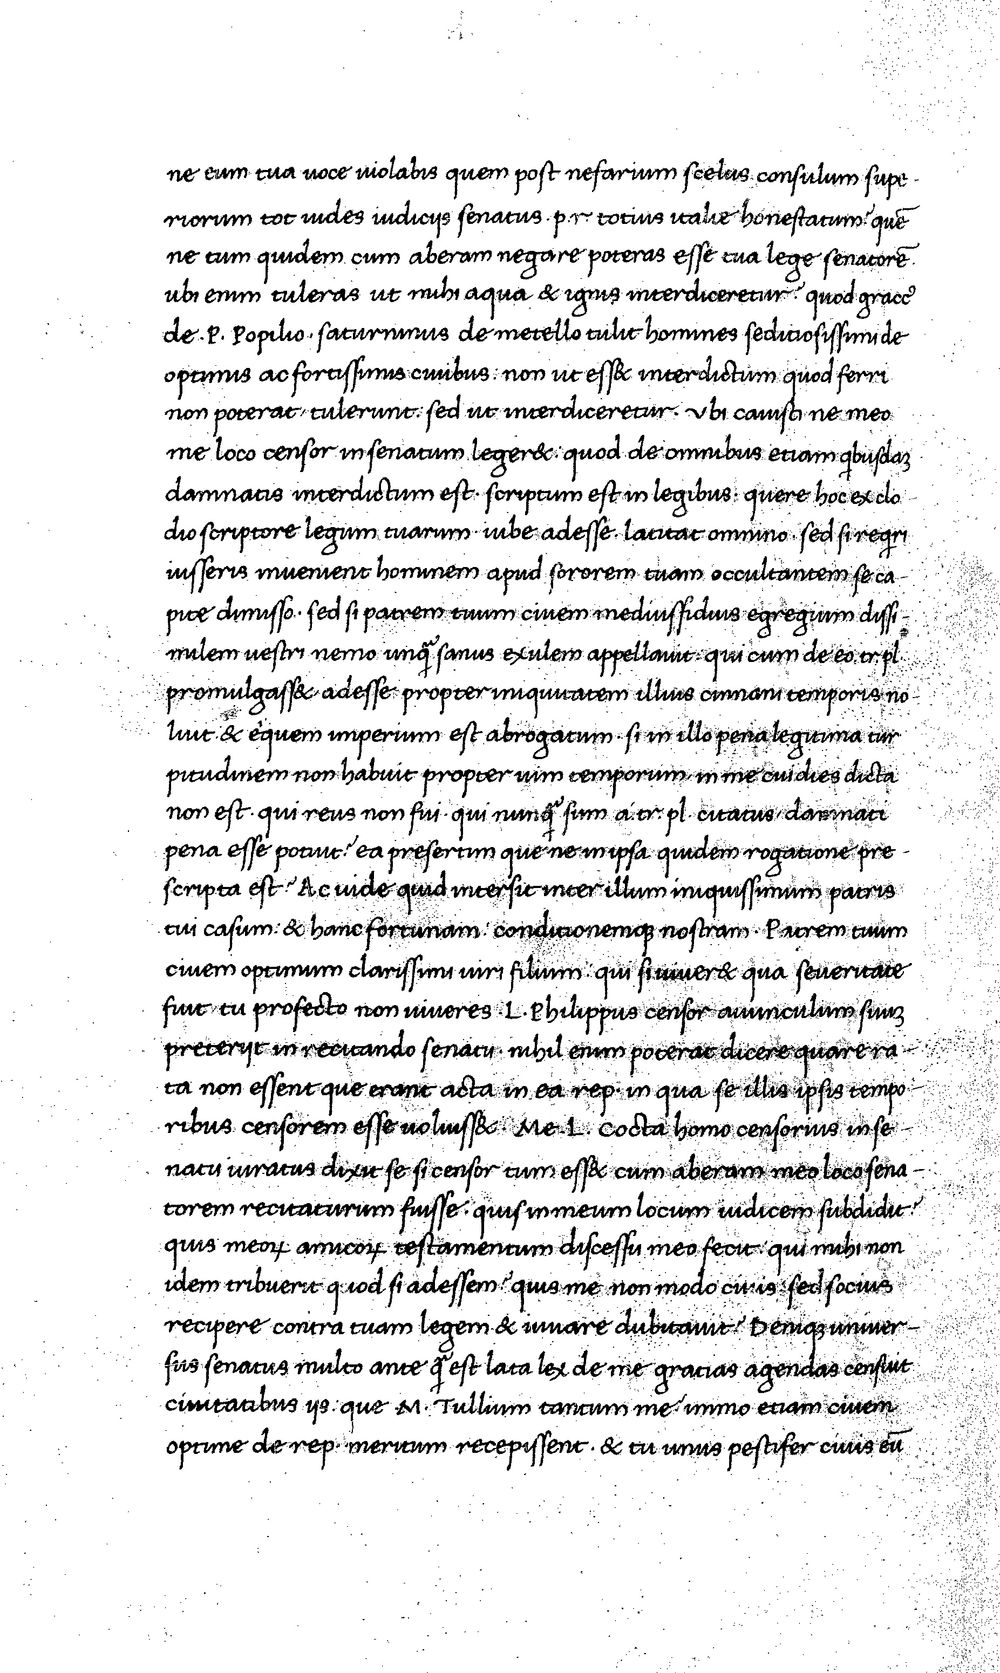 ne eum tua uoce uiolabis quem post nefarium scelus consulum supe-
riorum tot uides iudiciis senatus · p · r · totius italie honestatum? quē
ne tum quidem cum aberam negare poteras esse tua lege senatorē.
ubi enim tuleras ut mihi aqua & ignis interdiceretur? quod gracc᷒
de · P · Popilio · saturninus de metello tulit homines seditiosissimi de
optimis ac fortissimis ciuibus: non ut ess& interdictum quod ferri
non poterat, tulerunt: sed ut interdiceretur. Vbi cauisti ne meo
me loco censor in senatum leger&: quod de omnibus etiam qbusdaꝫ
damnatis interdictum est · scriptum est in legibus: quere hoc ex clo
dio scriptore legum tuarum · iube adesse · latitat omnino · sed si reqri
iusseris inuenient hominem apud sororem tuam occultantem se ca-
pite dimisso · sed si patrem tuum ciuem mediusfidius egregium dissi-
milem uestri nemo unꝗ̃ sanus exulem appellauit: qui cum de eo tr. pl.
promulgass& adesse propter iniquitatem illius cinnani temporis no-
luit & equem imperium est abrogatum · si in illo pena legitima tur
pitudinem non habuit propter uim temporum in me cui dies dicta
non est · qui reus non fui · qui nunꝗ̃ sum a tr. pl. citatus damnati
pena esse potuit? ea presertim que ne in ipsa quidem rogatione pre-
scripta est? Ac uide quid intersit inter illum iniquissimum patris
tui casum: & hanc fortunam: conditionemqꝫ nostram · Patrem tuum
ciuem optimum clarissimi uiri filium: qui si uiuer& qua seueritate
fuit tu profecto non uiueres · L · Philippus censor auunculum suuꝫ
preteriit in recitando senatu · nihil enim poterat dicere quare ra-
ta non essent que erant acta in ea rep · in qua se illis ipsis tempo
ribus censorem esse uoluiss& · Me · L · Cocta homo censorius in se-
natu iuratus dixit se si censor tum ess& cum aberam meo loco sena-
torem recitaturum fuisse · quis in meum locum iudicem subdidit?
quis meoꝝ amicoꝝ testamentum discessu meo fecit: qui mihi non
idem tribuerit quod si adessem? quis me non modo ciuis: sed socius
recipere contra tuam legem & iuuare dubitauit? Deniqꝫ uniuer-
sus senatus multo ante ꝗ̃ est lata lex de me gratias agendas censuit
ciuitatibus iis: que M · Tullium tantum me? immo etiam ciuem
optime de rep · meritum recepissent · & tu unus pestifer ciuis eū